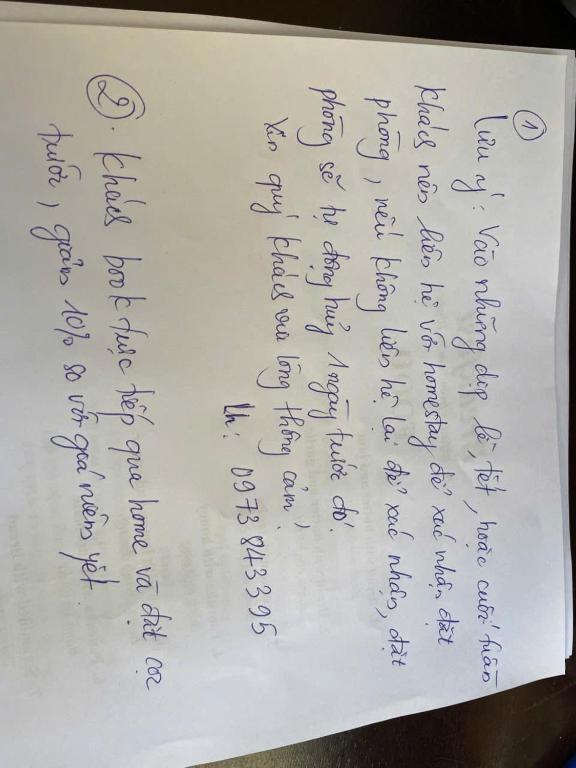 ①
Lưu ý: Vào những dịp lễ, tết, hoặc cuối tuần
khách nên liên hệ với homestay để xác nhận đặt
phòng, nếu không liên hệ lại để xác nhận, đặt
phòng sẽ tự động hủy 1 ngày trước đó.
Xin quý khách vui lòng thông cảm!
Lh: 0973 843395
②. Khách book trực tiếp qua home và đặt cọc
trước, giảm 10% so với giá niêm yết.